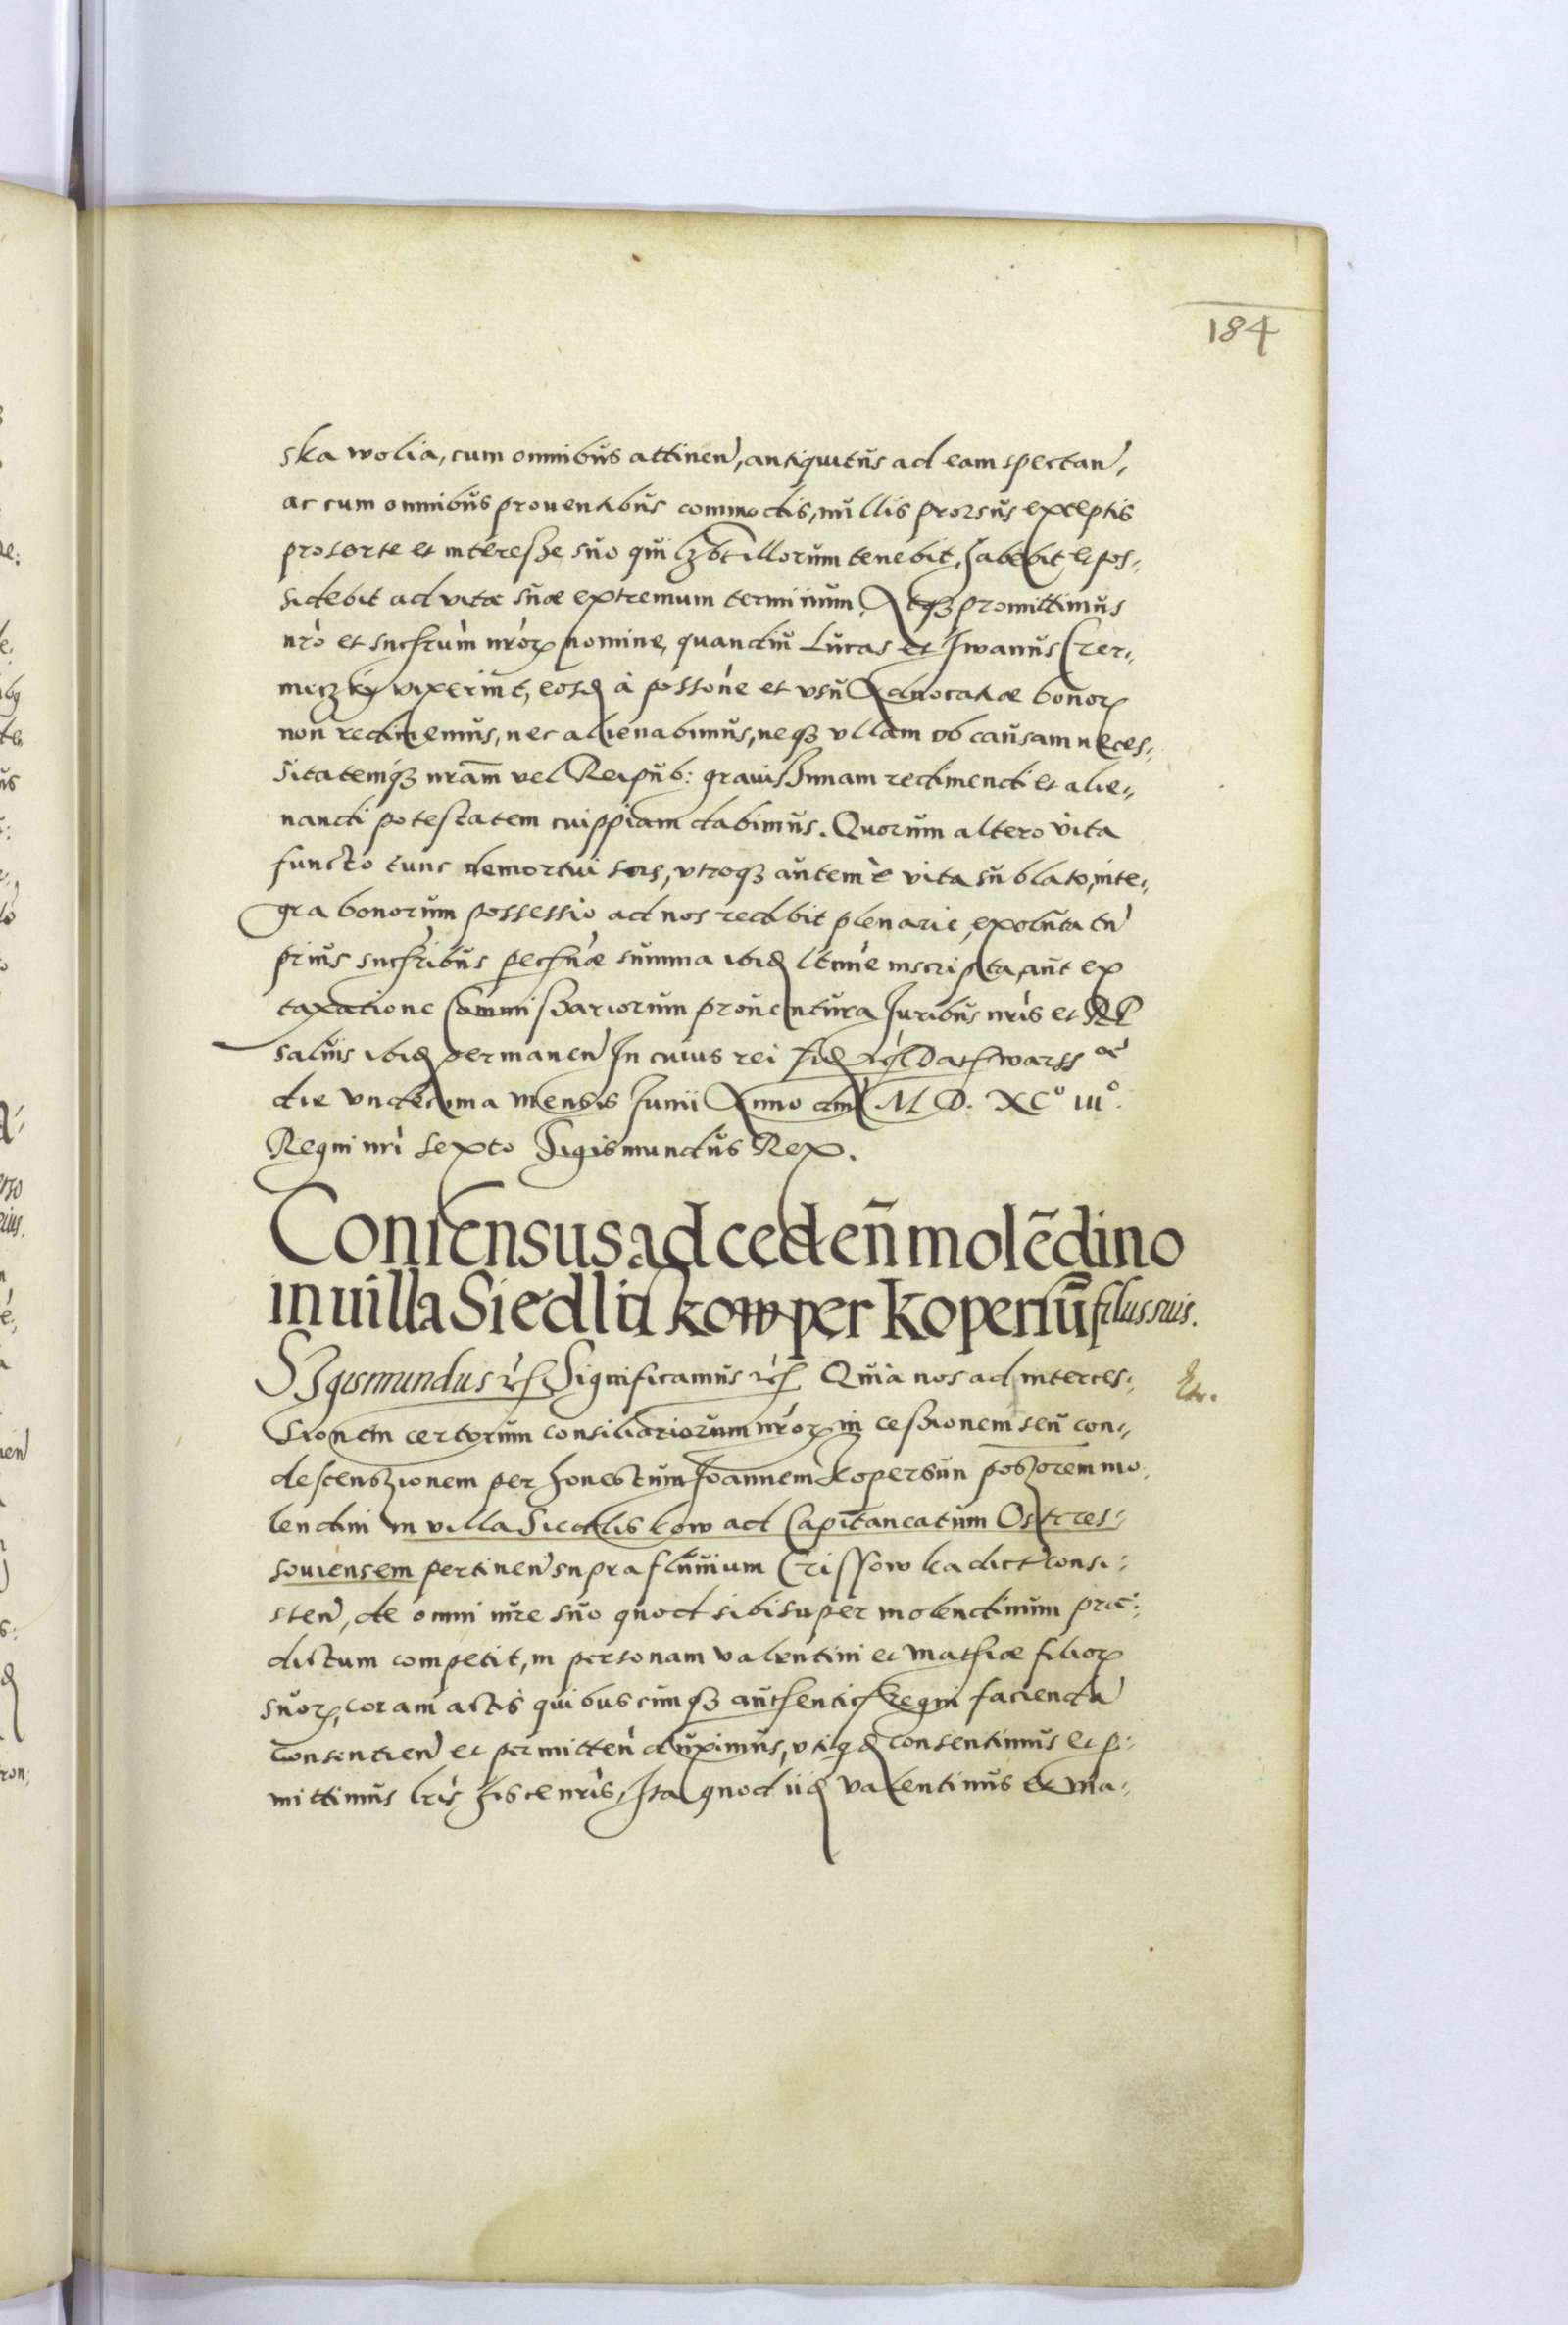 184
ska wolia, cum omnibus attinen, antiquitus ad eam spectan,
ac cum omnibus prouentibus commodis, nullis prorsus exceptis
pro sorte et interesse suo quilzbt illorum tenebit, habebit et pos-
sidebit ad vitæ suæ extremum terminum. Atqz promittimus
nro et succrum nror nomine, quandiu Lucas et Iwanus Czer-
miczky vixerint, eosd à possone et vsu Aduocatiæ bonor
non redimemus, nec alienabimus, neqz vllam ob causam neces-
sitatemqz nram vel Reipub: grauissimam redimendi et alie-
nandi potestatem cuippiam dabimus. Quorum altero vita
functo tunc demortui sors, vtroqz autem è vita sublato, inte-
gra bonorum possessio ad nos redibit plenarie, exoluta tn
prius succribus pecunæ summa ibid ltime inscripta, aut ex
taxatione Commissariorum prouentura Iuribus nris et RP
saluis ibid permanen In cuius rei fid rc Dat Warss æ
die vndecima mensis Iunii Anno dni M D. XC° III°.
Regni nri sexto Sigismundus Rex.
Consensus ad ceden molēdino
in uilla Siedlis kow per Koperiū filiis suis.
Sigismundus rc Significamus rc Quia nos ad interces-
sionem certorum consiliariorum nror in cessionem seu con-
descenszionem per honestum Ioannem Kopersun poszorem mo-
lendini in villa Siedlis kow ad Capitaneatum Ostrces-
souiensem pertinen supra fluuium Crissow ka dict consi-
sten, de omni iure suo quod sibi super molendinum præ-
dictum competit, in personam Valentini et Mathiæ filior
suor, coram actis quibuscunqz authentic Regni faciendā
consentien et permitten duximus, vtiqd consentimus et p-
mittimus lris hisce nris, Ita quod iid Valentinus et Ma-